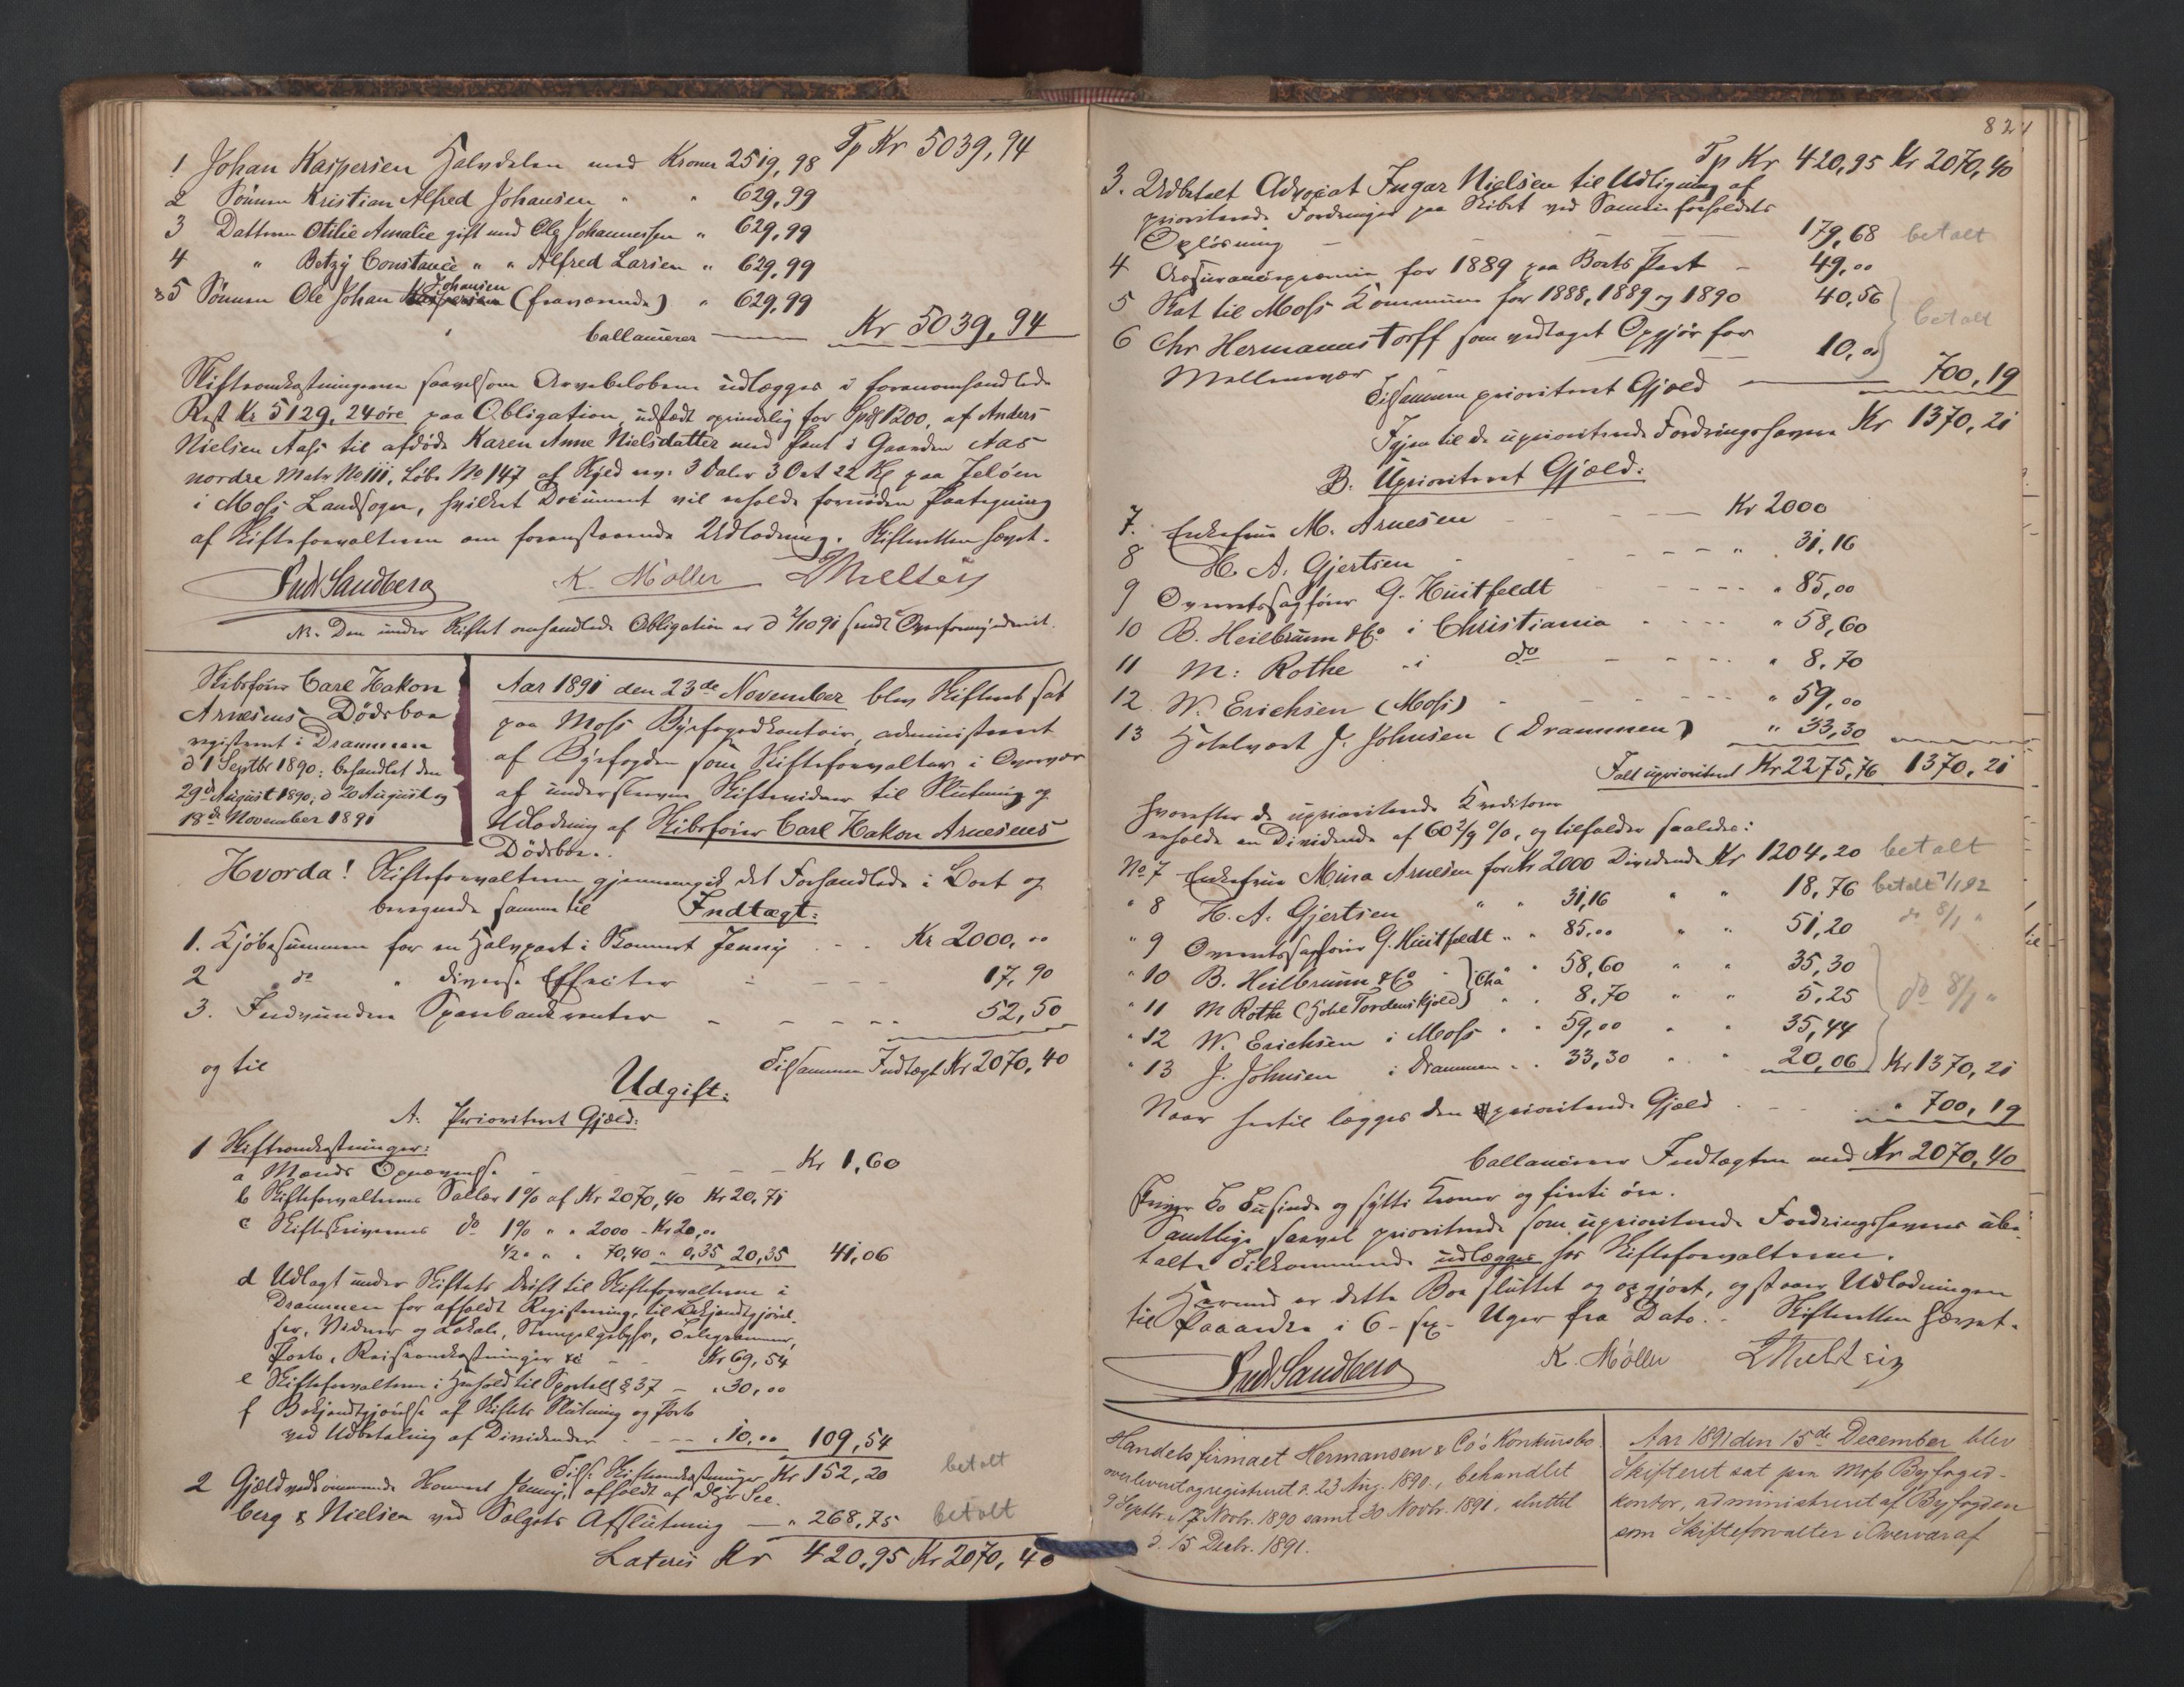 Tp Kr 5039,94
1 Johan Kaspersen Halvdelen med Kroner 2519,98
2 Sønnen Kristian Alfred Johansen " " 629,99
3 Datteren Otilie Amalie gift med Ole Johannessen " 629,99
4 " Betzy Constance " " Alfred Larsen " 629,99
5 Sønnen Ole Johan Johansen (fraværende) " 629,99
ballancerer Kr 5039,94
Skifteomkostningerne saavelsom Arvebeløbene udlægges i foranomhandlede
Rest Kr 5129,24 øre paa Obligation udstædt oprindelig for Spd 1200, af Anders
Nielsen Aass til afdøde Karen Anne Nielsdatter med Pant i Gaarden Aas
nordre Matr No 111, Løbe No 147 af Skyld nye 3 Daler 3 Ort 22 Sk paa Jeløen
i Moss Landsogn, hvilket Document vil erholde fornøden Paategning
af Skifteforvalteren om foranstaaende Udlodning. Skifteretten hævet.
Fred Sandberg K. Møller
N. Den under Skiftet omhandlede Obligation er d 2/10 91 sendt Overformynderiet.
Skibsfører Carl Hakon
Arnesens Dødsboe
registreret i Drammen
d 1 Septbr 1890; behandlet den
29de August 1890, d 20 August og
18de November 1891
Aar 1891 den 23de November blev Skifteret sat
paa Moss Byfogedkontoir, administreret
af Byfogden som Skifteforvalter i Overvær
af underskrevne Skiftevidner til Slutning og
Udlodning af Skibsfører Carl Hakon Arnesens
Dødsboe.
Hvorda! Skifteforvalteren gjennemgik det Forhandlede i Boet og
beregnede samme til Indtægt:
1. Kjøbesummen for en Halvpart i Skonnert Jenny Kr 2000,00
2 do " diverse Effecter 17,90
3. Indvundne Sparebankrenter 52,50
Tilsammen Indtægt Kr 2070,40
og til Udgift:
A. Prioriteret Gjæld:
1 Skifteomkostninger:
a Mænds Opnævnelse Kr 1,60
b Skifteforvalterens Sallær 1% af Kr 2070,40 Kr 20,71
c Skifteskriverens do 1% " " 2000 - Kr 20,00
1/2 " " " 70,40 " 0,35 20,35 41,06
d Udlagt under Skiftets Drift til Skifteforvalteren i
Drammen for afholdt Registrering, til Bekjendtgjørel-
ser, Vidner og Lokale, Stempelgebyhr, Telegrammer,
Porto, Reiseomkostninger &c Kr 69,54
e Skifteforvalteren i Henhold til Sportell § 37 " 30,00
f Bekjendtgjørelse af Skiftets Slutning og Porto
ved Udbetaling af Dividender " 10,00 109,54
Tils: Skifteomkostninger Kr 152,20 betalt
2 Gjæld vedkommende Skonnert Jenny, afholdt af See-
berg & Nielsen ved Salgets Afslutning " 268,75 betalt
Lateris Kr 420,95 Kr 2070,40
824
Tp Kr 420,95 Kr 2070,40
3. Udbetalt Advocat Ingar Nielsen til Udligning af
prioriterede Fordringer paa Skibet ved Sameieforholdets
Opløsning 179,68 betalt
4 Assurancepremie for 1889 paa Boets Part 49,00
5 Skat til Moss Kommune for 1888, 1889 og 1890 40,56
6 Chr Hermannstorff som vedtaget Opgjør for
Mellemvær 10,00 betalt
Tilsammen prioriteret Gjæld 700,19
Igjen til de uprioriterede Fordringshavere Kr 1370,21
B. Uprioriteret Gjæld:
7. Enkefrue M. Arnesen Kr 2000
8 H. A. Gjertsen " 31,16
9 Overretssagfører G. Huitfeldt " 85,00
10 B. Heilbrunn & Co i Christiania " 58,60
11 M. Rothe - i do " 8,70
12 W. Erichsen (Moss) " 59,00
13 Hotelvært J. Johnsen (Drammen) " 33,30
Ialt uprioriteret Kr 2275,76 1370,21
hvorefter de uprioriterede Kreditorer
erholde en Dividende af 60 2/9 %, og tilfalder saaledes:
No 7 Enkefrue Mina Arnesen for Kr 2000 Dividende Kr 1204,20 betalt
" 8 H. A. Gjertsen " " 31,16 " " 18,76 betalt 7/1 92
" 9 Overretssagfører G. Huitfeldt " " 85,00 " " 51,20 do 8/1 "
" 10 B. Heilbrunn & Co } i Chra " " 58,60 " " 35,30
" 11 M Rothe (Hotel Tordenskjold) " " 8,70 " " 5,25 do 8/1 "
" 12 W. Erichsen i Moss " " 59,00 " " 35,44
" 13 J. Johnsen i Drammen " " 33,30 " " 20,06 Kr 1370,21
Naar hertil lægges den prioriterede Gjæld " 700,19
ballancerer Indtægten med Kr 2070,40
To Tusinde og sytti Kroner og firti øre.
Samtlige saavel prioriterede som uprioriterede Fordringshaveres ube-
talte Tilkommende udlægges hos Skifteforvalteren.
Hermed er dette Boe sluttet og opgjort, og staaer Udlodningen
til Paaanke i 6 - sex - Uger fra Dato. Skifteretten hævet.
Fred Sandberg K. Møller
Handelsfirmaet Hermansen & Co's Konkursbo
overleveret og registreret d. 23 Aug. 1890, behandlet
9 Septbr., 17 Novbr. 1890 samt 30 Novbr. 1891, sluttet
d. 15 Decbr. 1891.
Aar 1891 den 15de December blev
Skifteret sat paa Moss Byfoged-
kontor, administreret af Byfogden
som Skifteforvalter i Overvær af